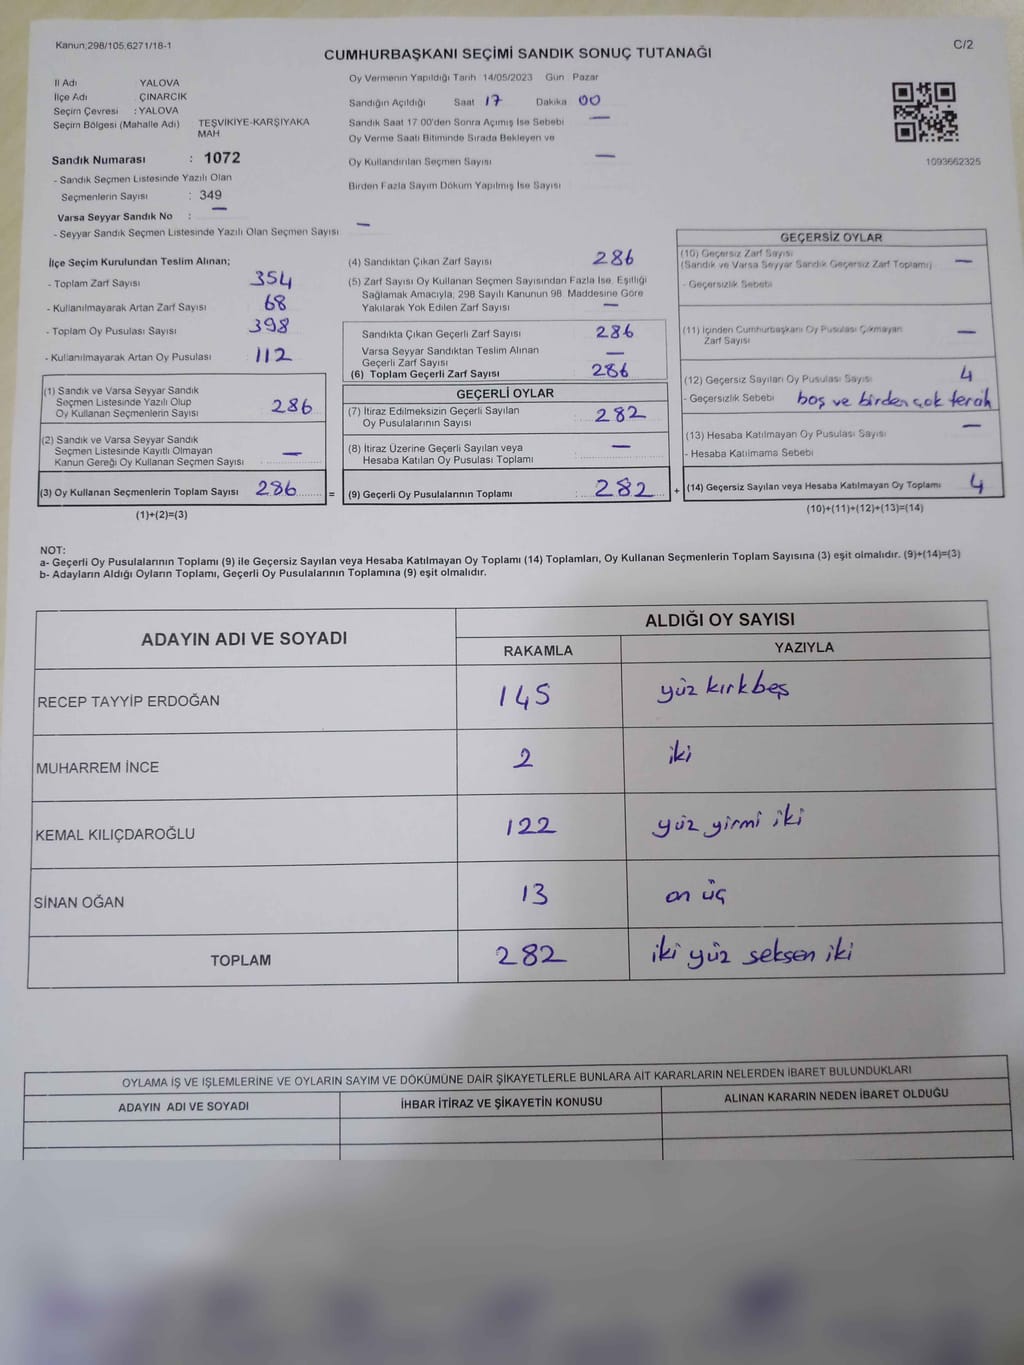 Kanun;298/105,6271/18-1
C/2
CUMHURBAŞKANI SEÇİMİ SANDIK SONUÇ TUTANAĞI
İl Adı YALOVA
İlçe Adı : ÇINARCIK
Seçim Çevresi : YALOVA
Seçim Bölgesi (Mahalle Adı) TEŞVİKİYE-KARŞIYAKA
MAH
Sandık Numarası : 1072
- Sandık Seçmen Listesinde Yazılı Olan
Seçmenlerin Sayısı : 349
Varsa Seyyar Sandık No : —
- Seyyar Sandık Seçmen Listesinde Yazılı Olan Seçmen Sayısı —
Oy Vermenin Yapıldığı Tarih 14/05/2023 Gün Pazar
Sandığın Açıldığı Saat 17 Dakika 00
Sandık Saat 17:00'den Sonra Açımış İse Sebebi —
Oy Verme Saati Bitiminde Sırada Bekleyen ve
Oy Kullandırılan Seçmen Sayısı —
Birden Fazla Sayım Döküm Yapılmış İse Sayısı
1093662325
İlçe Seçim Kurulundan Teslim Alınan;
- Toplam Zarf Sayısı 354
- Kullanılmayarak Artan Zarf Sayısı 68
- Toplam Oy Pusulası Sayısı 398
- Kullanılmayarak Artan Oy Pusulası 112
(1) Sandık ve Varsa Seyyar Sandık
Seçmen Listesinde Yazılı Olup
Oy Kullanan Seçmenlerin Sayısı 286
(2) Sandık ve Varsa Seyyar Sandık
Seçmen Listesinde Kayıtlı Olmayan
Kanun Gereği Oy Kullanan Seçmen Sayısı —
(3) Oy Kullanan Seçmenlerin Toplam Sayısı 286 =
(1)+(2)=(3)
(4) Sandıktan Çıkan Zarf Sayısı 286
(5) Zarf Sayısı Oy Kullanan Seçmen Sayısından Fazla İse, Eşitliği
Sağlamak Amacıyla, 298 Sayılı Kanunun 98. Maddesine Göre
Yakılarak Yok Edilen Zarf Sayısı —
Sandıkta Çıkan Geçerli Zarf Sayısı 286
Varsa Seyyar Sandıktan Teslim Alınan
Geçerli Zarf Sayısı —
(6) Toplam Geçerli Zarf Sayısı 286
GEÇERLİ OYLAR
(7) İtiraz Edilmeksizin Geçerli Sayılan
Oy Pusulalarının Sayısı 282
(8) İtiraz Üzerine Geçerli Sayılan veya
Hesaba Katılan Oy Pusulası Toplamı —
(9) Geçerli Oy Pusulalarının Toplamı : 282 +
GEÇERSİZ OYLAR
(10) Geçersiz Zarf Sayısı
(Sandık ve Varsa Seyyar Sandık Geçersiz Zarf Toplamı) —
- Geçersizlik Sebebi
(11) İçinden Cumhurbaşkanı Oy Pusulası Çıkmayan
Zarf Sayısı —
(12) Geçersiz Sayılan Oy Pusulası Sayısı 4
- Geçersizlik Sebebi boş ve birden çok tercih
(13) Hesaba Katılmayan Oy Pusulası Sayısı —
- Hesaba Katılmama Sebebi
(14) Geçersiz Sayılan veya Hesaba Katılmayan Oy Toplamı 4
(10)+(11)+(12)+(13)=(14)
NOT:
a- Geçerli Oy Pusulalarının Toplamı (9) ile Geçersiz Sayılan veya Hesaba Katılmayan Oy Toplamı (14) Toplamları, Oy Kullanan Seçmenlerin Toplam Sayısına (3) eşit olmalıdır. (9)+(14)=(3)
b- Adayların Aldığı Oyların Toplamı, Geçerli Oy Pusulalarının Toplamına (9) eşit olmalıdır.
ADAYIN ADI VE SOYADI
ALDIĞI OY SAYISI
RAKAMLA YAZIYLA
RECEP TAYYİP ERDOĞAN 145 yüz kırkbeş
MUHARREM İNCE 2 iki
KEMAL KILIÇDAROĞLU 122 yüz yirmi iki
SİNAN OĞAN 13 on üç
TOPLAM 282 iki yüz seksen iki
OYLAMA İŞ VE İŞLEMLERİNE VE OYLARIN SAYIM VE DÖKÜMÜNE DAİR ŞİKAYETLERLE BUNLARA AİT KARARLARIN NELERDEN İBARET BULUNDUKLARI
ADAYIN ADI VE SOYADI İHBAR İTİRAZ VE ŞİKAYETİN KONUSU ALINAN KARARIN NEDEN İBARET OLDUĞU